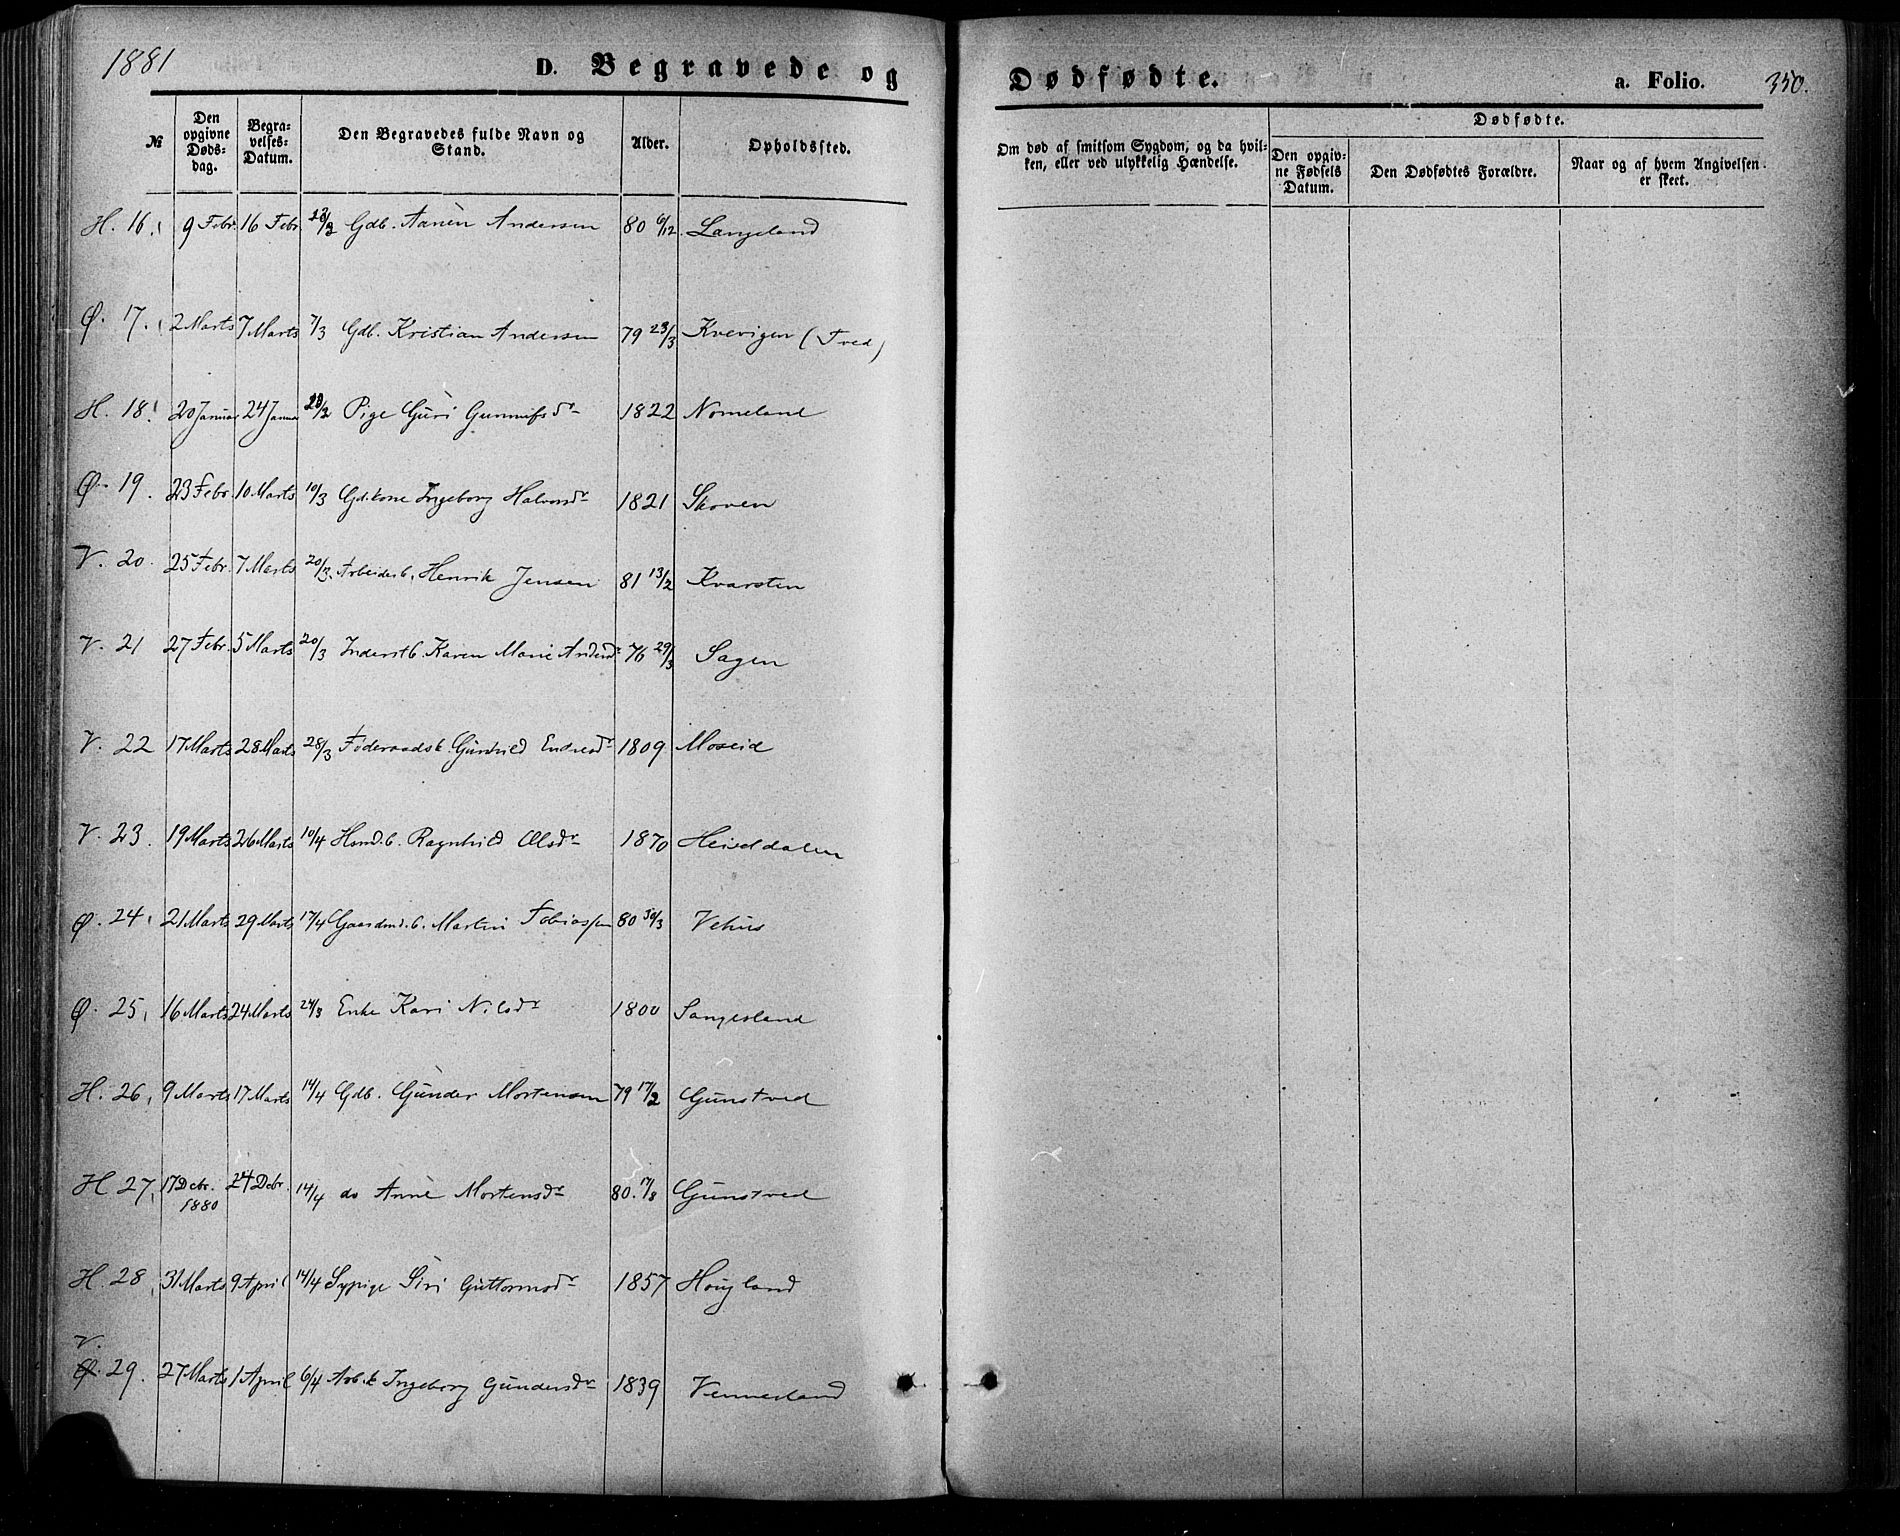 1881
D. Begravede og Dødfødte.
a. Folio. 350.
№
Den opgivne Døds-dag.
Begra-velses-Datum.
Den Begravedes fulde Navn og Stand.
Alder.
Opholdssted.
Om død af smitsom Sygdom, og da hvil-ken, eller ved ulykkelig Hændelse.
Dødfødte.
Den opgiv-ne Fødsels Datum.
Den Dødfødtes Forældre.
Naar og af hvem Angivelsen er skeet.
H. 16. 9 Febr. 16 Febr. Gdb. Aanen Andersen 80 6/12 Langeland
Ø. 17. 2 Marts 7 Marts 7/3 Gdb. Kristian Andersen 79 23/3 Kvevigen (Tved)
H. 18. 20 Januar 24 Januar Pige Guri Gunnufsdr 1822 Nomeland
Ø. 19. 23 Febr. 10 Marts 10/3 Gdkone Ingeborg Halvorsdr 1821 Skoven
V. 20. 25 Febr. 7 Marts 20/3 Arbeiderb. Henrik Jensen 81 13/2 Kvarsten
V. 21 27 Febr. 5 Marts 20/3 Inderstb. Karen Marie Andersdr 76 29/3 Sagen
V. 22 17 Marts 28 Marts 28/3 Føderaadsk. Gunhild Endresdr 1809 Moseid
V. 23. 19 Marts 26 Marts 10/4 Husmd.b. Ragnhild Olsdr 1870 Heiseldalen
Ø. 24. 21 Marts 29 Marts 17/4 Gaardmd.b. Martin Tobiassen 80 30/3 Vehus
Ø. 25. 16 Marts 24 Marts 24/3 Enke Kari Nilsdr 1800 Sangesland
H. 26. 9 Marts 17 Marts 14/4 Gdb. Gunder Mortensen 79 17/2 Gunstved
H 27. 17 Debr. 1880 24 Debr. 14/4 do Anne Mortensdr 80. 17/8 Gunstved
H. 28. 31 Marts 9 April 14/4 Sypige Siri Guttormsdr 1857 Hougland
V.
Ø. 29. 27 Marts 1 April 6/4 Arb.k Ingeborg Gundersdr 1839 Vennesland